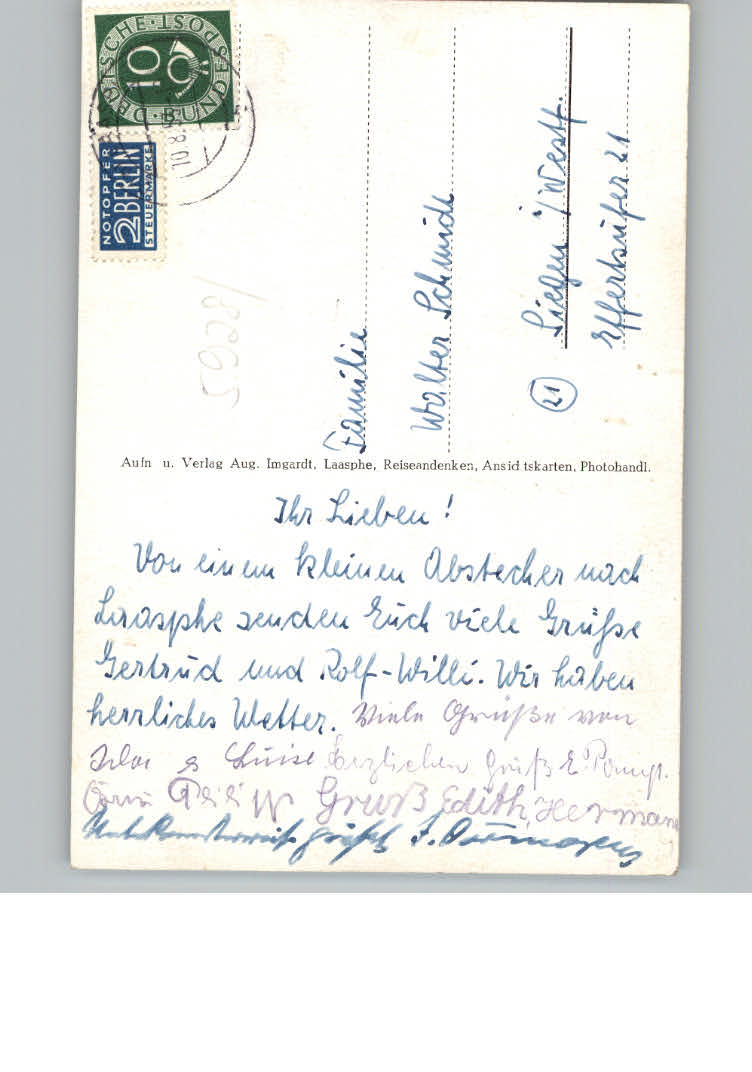 DEUTSCHE BUNDESPOST
10
NOTOPFER
2 BERLIN
STEUERMARKE
18295
Familie
Walter Schmidt
(21) Siegen i/Westf.
Effertsufer 21
Aufn u. Verlag Aug. Imgardt, Laasphe, Reiseandenken, Ansichtskarten, Photohandl.
Ihr Lieben!
Von einem kleinen Abstecher nach
Laasphe senden Euch viele Grüße
Gertrud und Rolf-Willi. Wir haben
herrliches Wetter. Viele Grüße von
Luise Herzlichen Gruß E.
Gruß Edith, Hermann